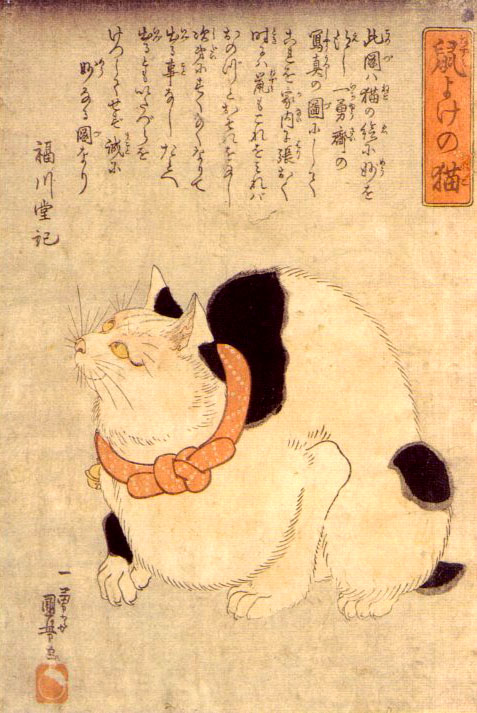 鼠よけの猫
此圖ハ猫の絵に妙を
得し一勇齋の
寫真の圖にして
これを家内に張おく
時ハ鼠もこれをみれバ
おのづとおそれをなし
次第にすくなくなりて
出る事なしたとへ
出るともいたづらを
けつしてせず誠に
妙なる圖なり
福川堂記
一勇斎
國芳画